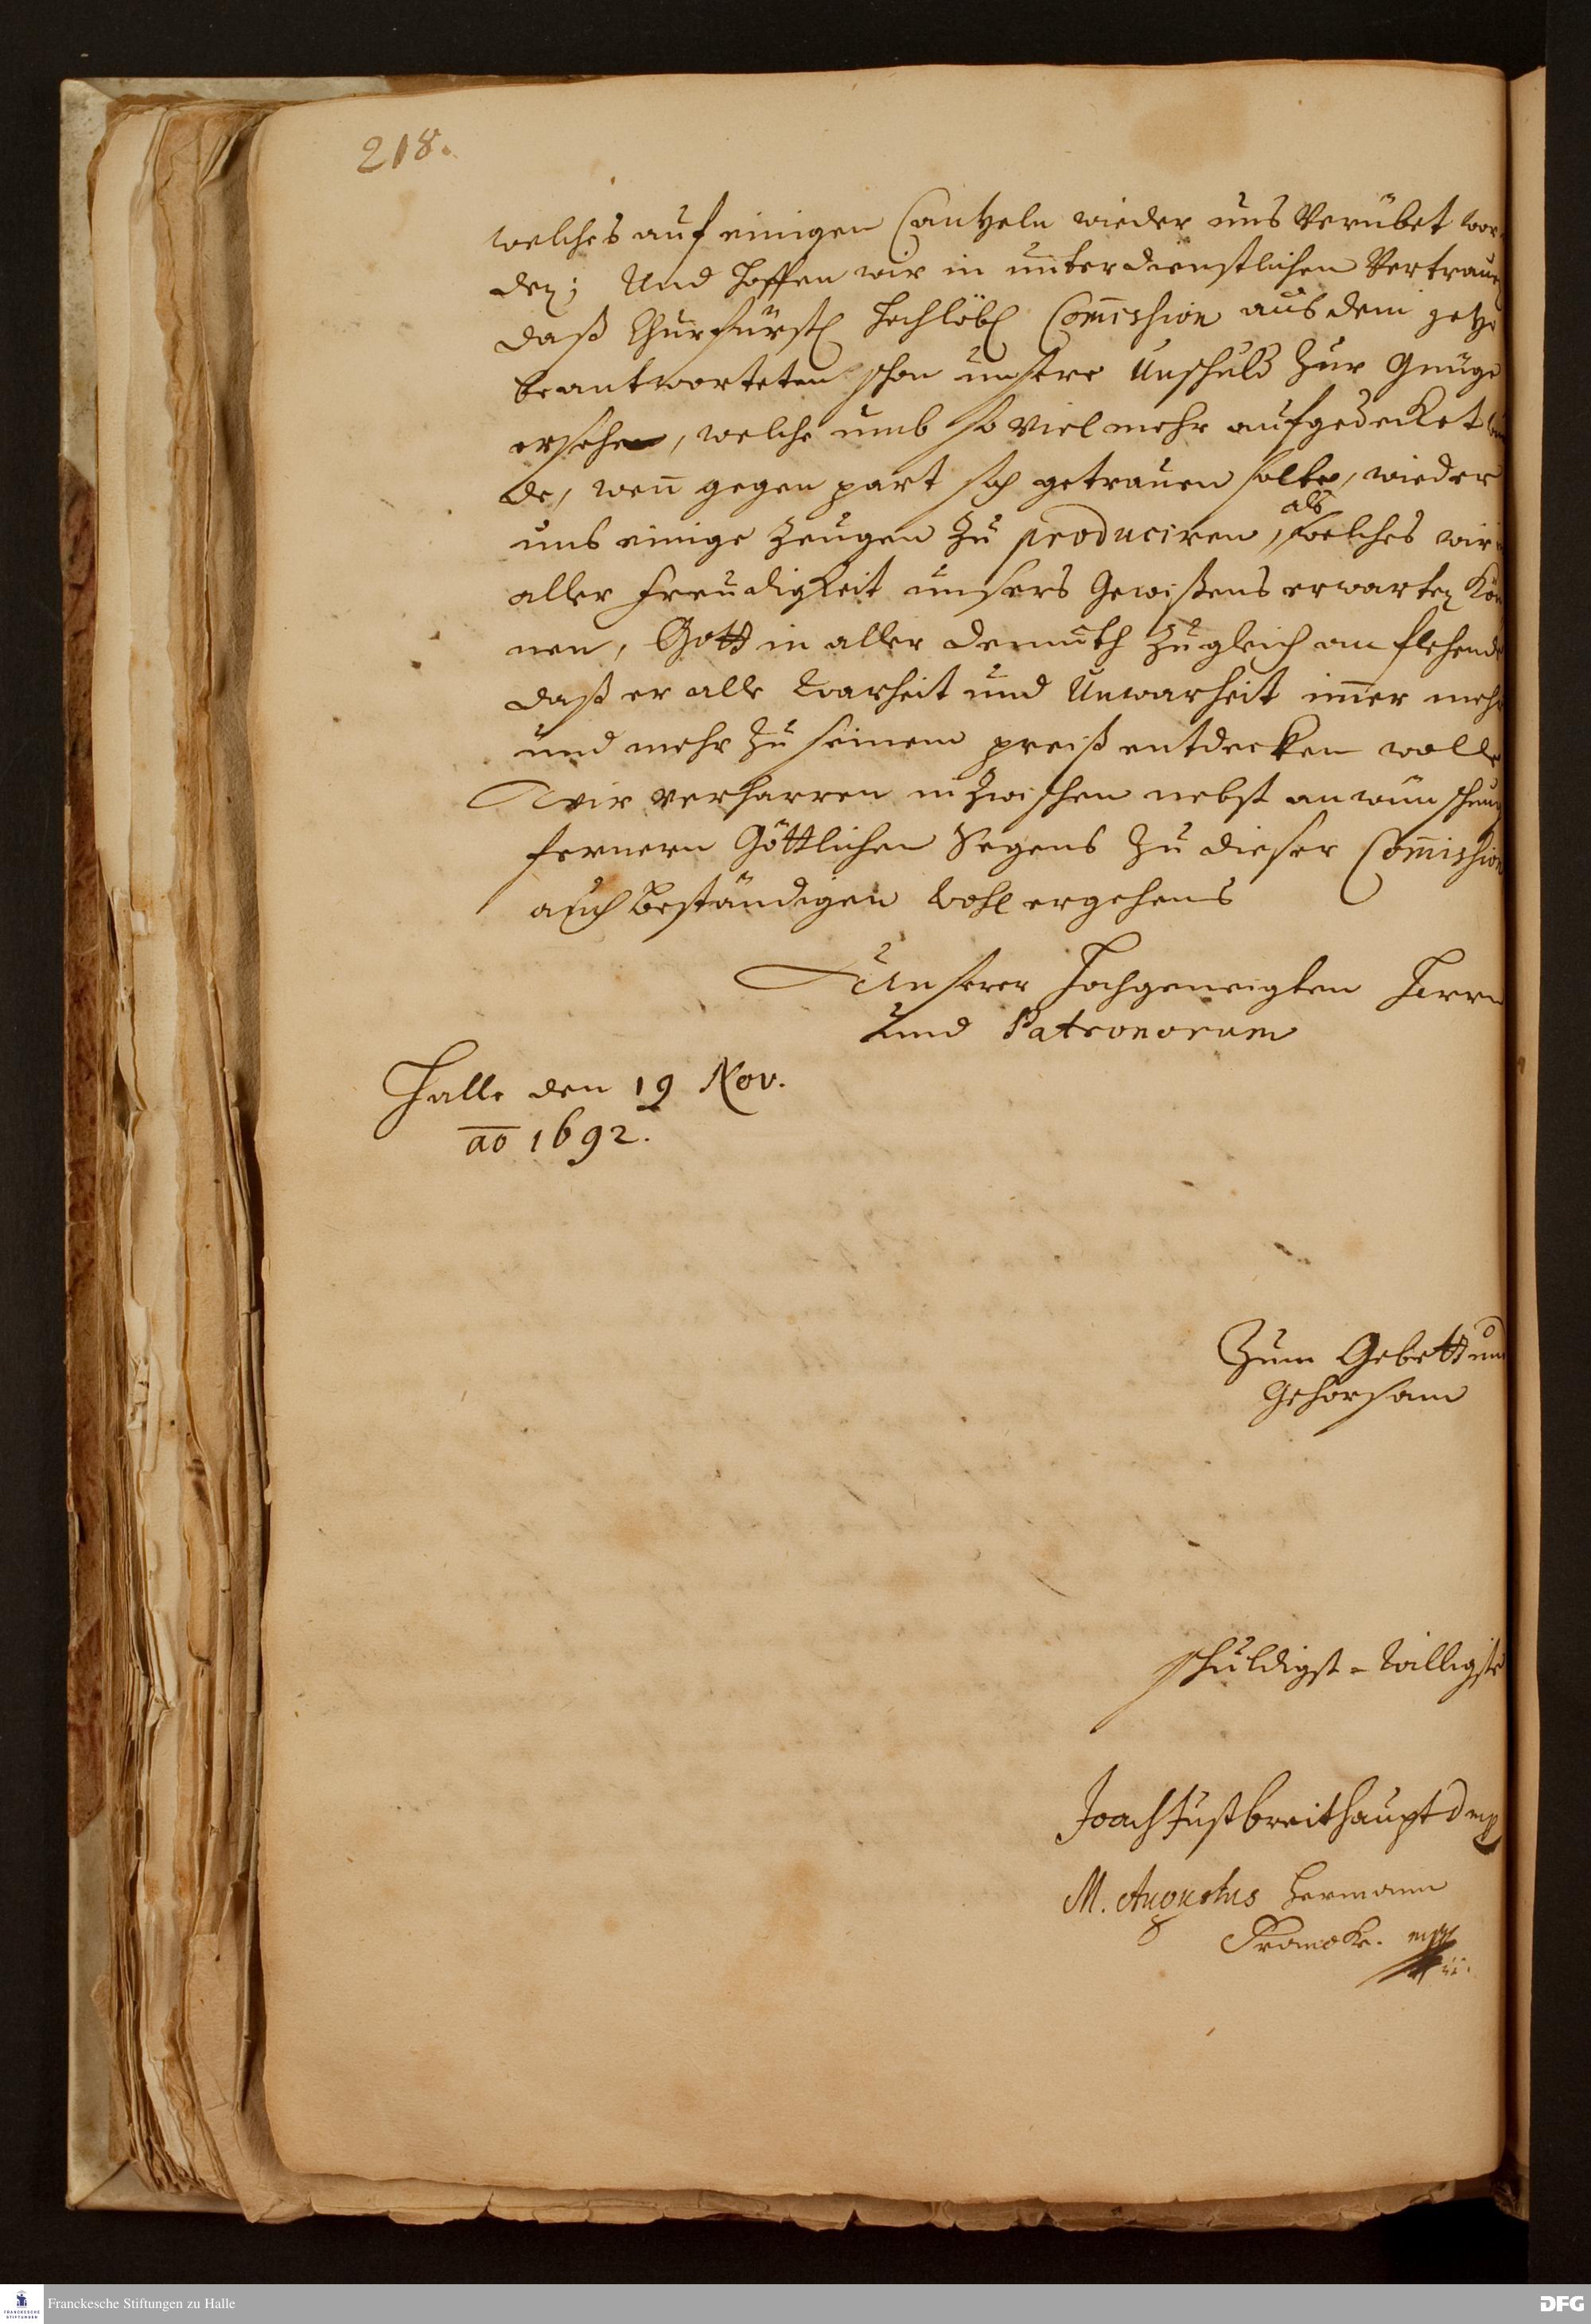 218.
welches auf einigen Cantzeln wieder uns verübet wor-
den; Und hoffen wir in unterdienstlichen Vertrauen
daß Churfürstl Hochlöbl Com̄ission aus dem jetzo
beantworteten schon unsere Unschuld zur Gnüge
ersehen, welche umb so viel mehr aufgedecket
de, wen̄ gegen part sich getrauen solte, wieder
als
uns einige Zeugen zu produciren, welches wir
aller Freudigkeit unsers Gewißens erwarten kön
nen, Gott in aller demuth zugleich anflehende
daß er alle Warheit und Unwarheit im̄er mehr
und mehr zu seinem preiß entdecken wolle
Wir verharren inzwischen nebst anwünschung
fernern Göttlichen Segens zu dieser Com̄ission
auch beständigen wohlergehens
Unserer Hochgeneigten Herrn
und Patronorum
Halle den 19 Nov.
ao 1692.
Zum Gebett und
Gehorsam
schuldigst-willigste
Joach Just breithaupt D mp
M. Augustus Hermann
Francke. mpp
Franckesche Stiftungen zu Halle
FRANCKESCHE
STIFTUNGEN
DFG